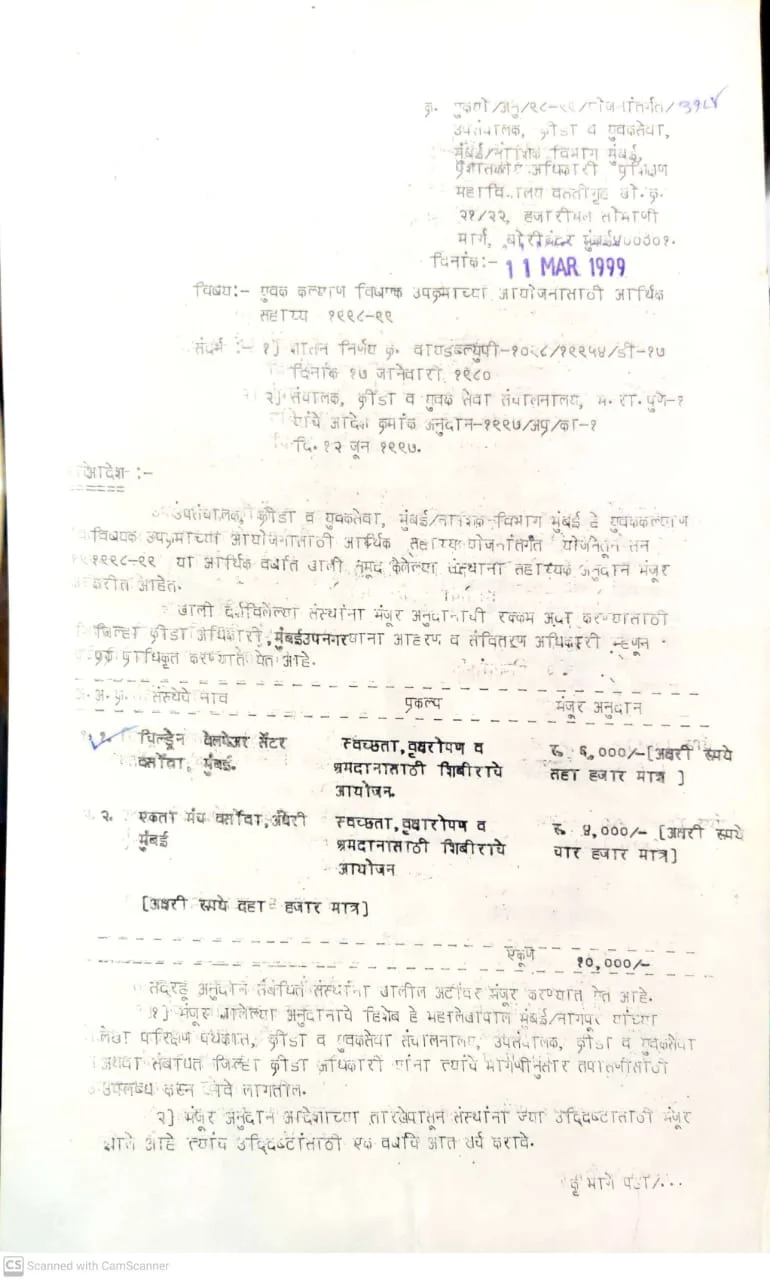 क्र. युकयो/अनु/९८-९९/योजनांतर्गत/३१८४
उपसंचालक, क्रीडा व युवकसेवा,
मुंबई/नाशिक विभाग मुंबई,
प्रशासकीय अधिकारी प्रशिक्षण
महाविद्यालय वसतीगृह खो.क्र.
२१/२२, हजारीमल सोमाणी
मार्ग, बोरीबंदर मुंबई४००००१.
दिनांक:- 11 MAR 1999
विषय:- युवक कल्याण विषयक उपक्रमाच्या आयोजनासाठी आर्थिक
सहाय्य १९९८-९९
संदर्भ :- १) शासन निर्णय क्र. वायडब्ल्युपी-१०२८/१९१५४/डी-१७
दिनांक १७ जानेवारी १९८०
२) संचालक, क्रीडा व युवक सेवा संचालनालय, म. रा. पुणे-१
यांचे आदेश क्रमांक अनुदान-१९९७/अप्र/का-१
दि. १२ जून १९९७.
आदेश :-
उपसंचालक, क्रीडा व युवकसेवा, मुंबई/नाशिक विभाग मुंबई हे युवककल्याण
विषयक उपक्रमाच्या आयोजनासाठी आर्थिक सहाय्य योजनांतर्गत योजनेतून सन
१९९८-९९ या आर्थिक वर्षात खाली नमूद केलेल्या संस्थांना सहाय्यक अनुदान मंजूर
करीत आहेत.
खाली दर्शविलेल्या संस्थांना मंजूर अनुदानाची रक्कम अदा करण्यासाठी
जिल्हा क्रीडा अधिकारी, मुंबईउपनगर यांना आहरण व संवितरण अधिकारी म्हणून
प्राधिकृत करण्यात येत आहे.
अ. क्र. संस्थेचे नाव प्रकल्प मंजूर अनुदान
१. चिल्ड्रेन वेलफेअर सेंटर स्वच्छता,वृक्षरोपण व रु. ६,०००/-[अक्षरी रुपये
वर्सोवा, मुंबई. श्रमदानासाठी शिबीराचे सहा हजार मात्र ]
आयोजन.
२. एकता मंच वर्सोवा,अंधेरी स्वच्छता,वृक्षारोपण व रु. ४,०००/- [अक्षरी रुपये
मुंबई श्रमदानासाठी शिबीराचे चार हजार मात्र]
आयोजन
[अक्षरी रुपये दहा हजार मात्र]
एकूण १०,०००/-
सदरहू अनुदान संबंधित संस्थांना खालील अटींवर मंजूर करण्यात येत आहे.
१) मंजूर झालेल्या अनुदानाचे हिशेब हे महालेखापाल मुंबई/नागपूर यांच्या
लेखा परिक्षण पथकास, क्रीडा व युवकसेवा संचालनालय, उपसंचालक, क्रीडा व युवकसेवा
अथवा संबंधित जिल्हा क्रीडा अधिकारी यांना त्यांचे मागणीनुसार तपासणीसाठी
उपलब्ध करुन द्यावे लागतील.
२) मंजूर अनुदान आदेशाच्या तारखेपासून संस्थांना ज्या उद्दिष्टासाठी मंजूर
झाले आहे त्यांच उद्दिष्टांसाठी एक वर्षाचे आत खर्च करावे.
कृ मागे पहा/...
CS Scanned with CamScanner